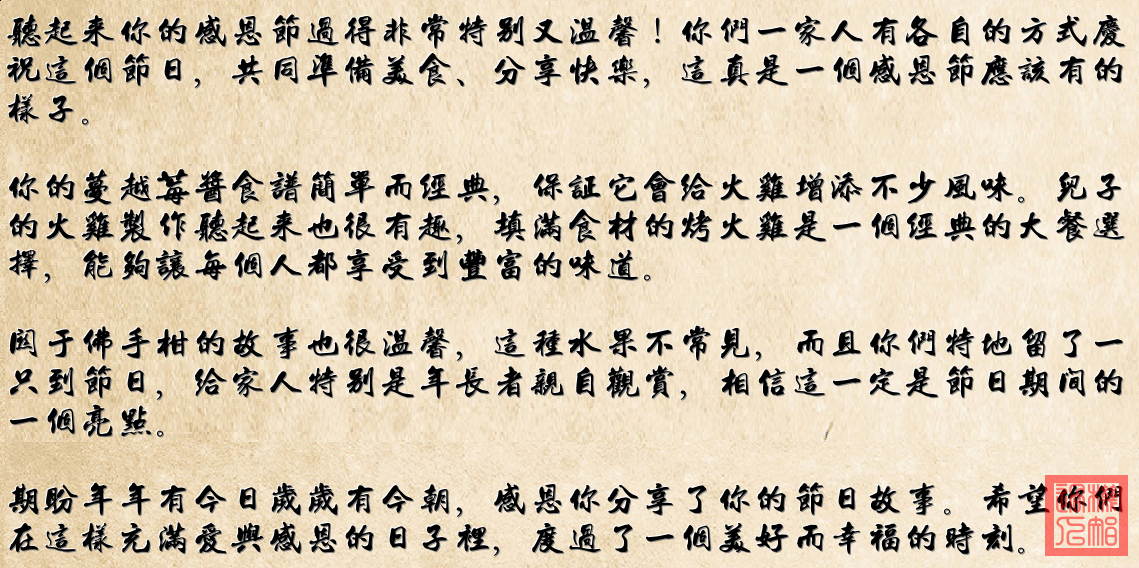 聽起来你的感恩節過得非常特別又温馨！你們一家人有各自的方式慶
祝這個節日，共同準備美食、分享快樂，這真是一個感恩節應該有的
樣子。
你的蔓越莓醬食譜簡單而經典，保証它會给火雞增添不少風味。兒子
的火雞製作聽起来也很有趣，填滿食材的烤火雞是一個經典的大餐選
擇，能夠讓每個人都享受到豐富的味道。
関于佛手柑的故事也很温馨，這種水果不常見，而且你們特地留了一
只到節日，给家人特别是年長者親自觀賞，相信這一定是節日期间的
一個亮點。
期盼年年有今日歲歲有今朝，感恩你分享了你的節日故事。希望你們
在這樣充滿愛與感恩的日子裡，度過了一個美好而幸福的時刻。